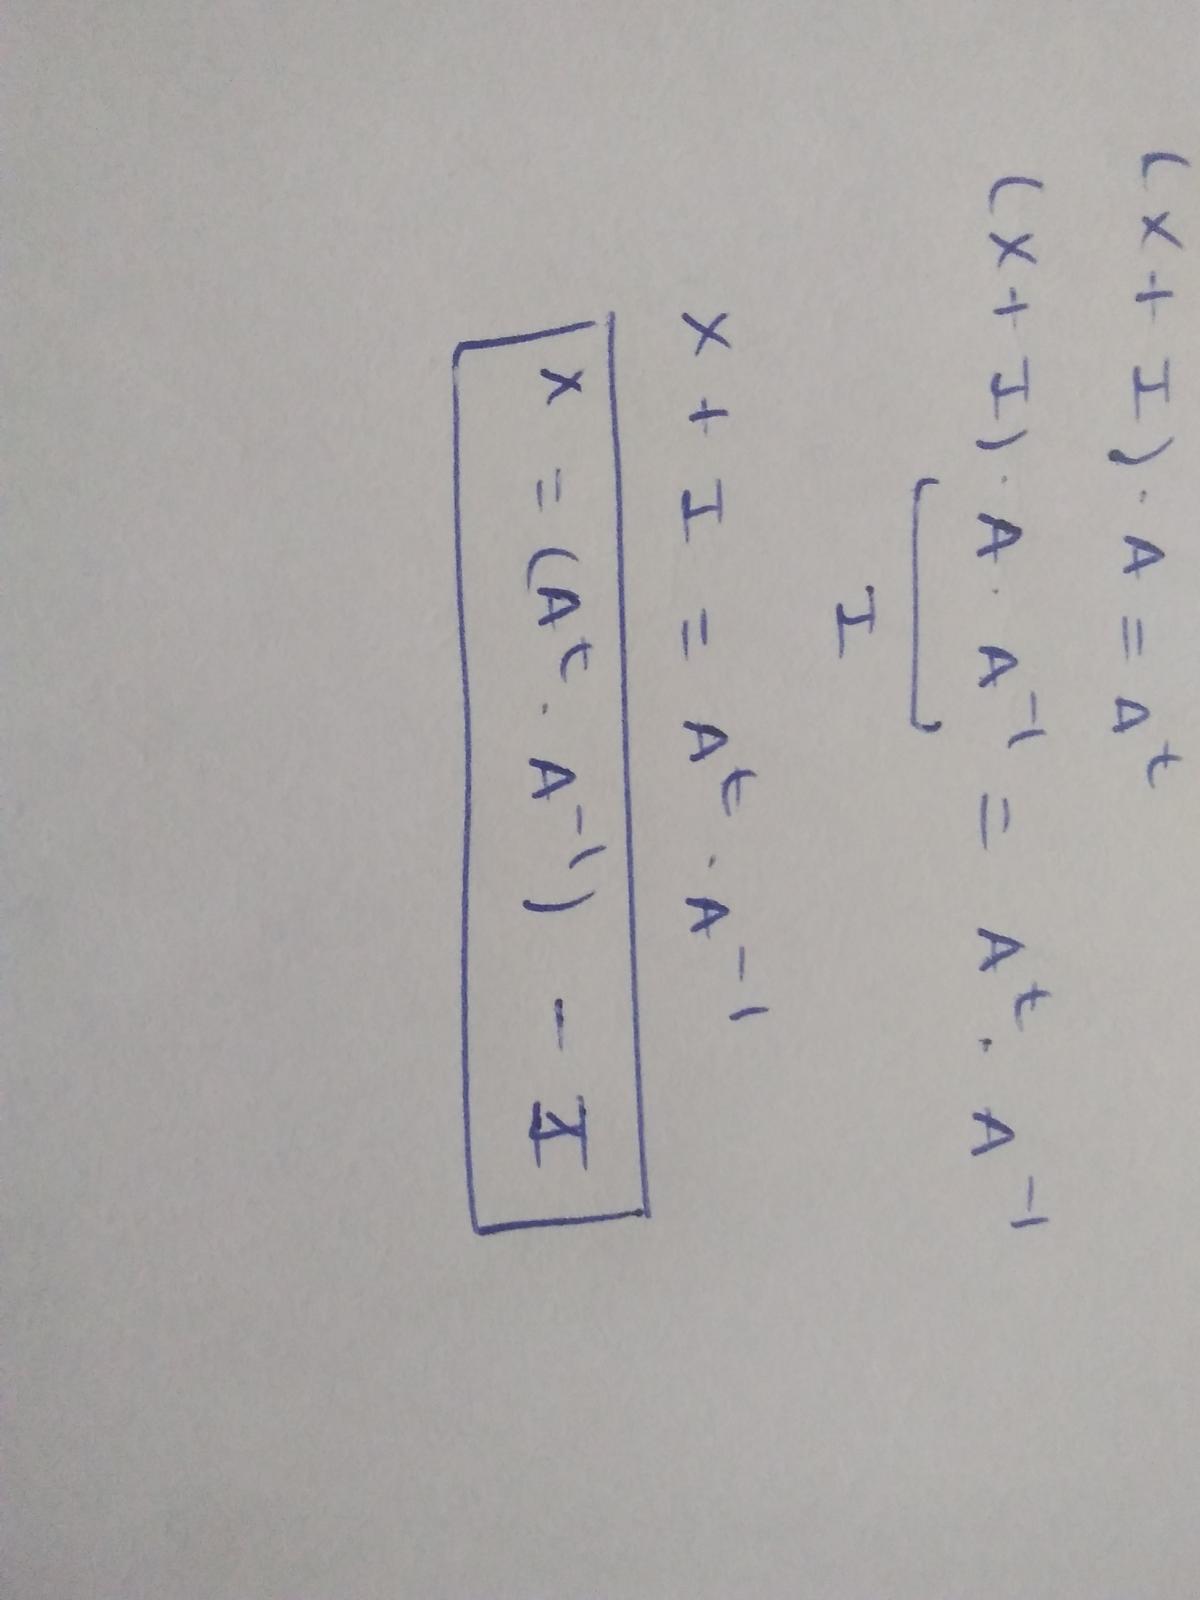 (X + I) · A = Aᵗ
(X + I) · A · A⁻¹ = Aᵗ · A⁻¹
I
X + I = Aᵗ · A⁻¹
X = (Aᵗ · A⁻¹) - I